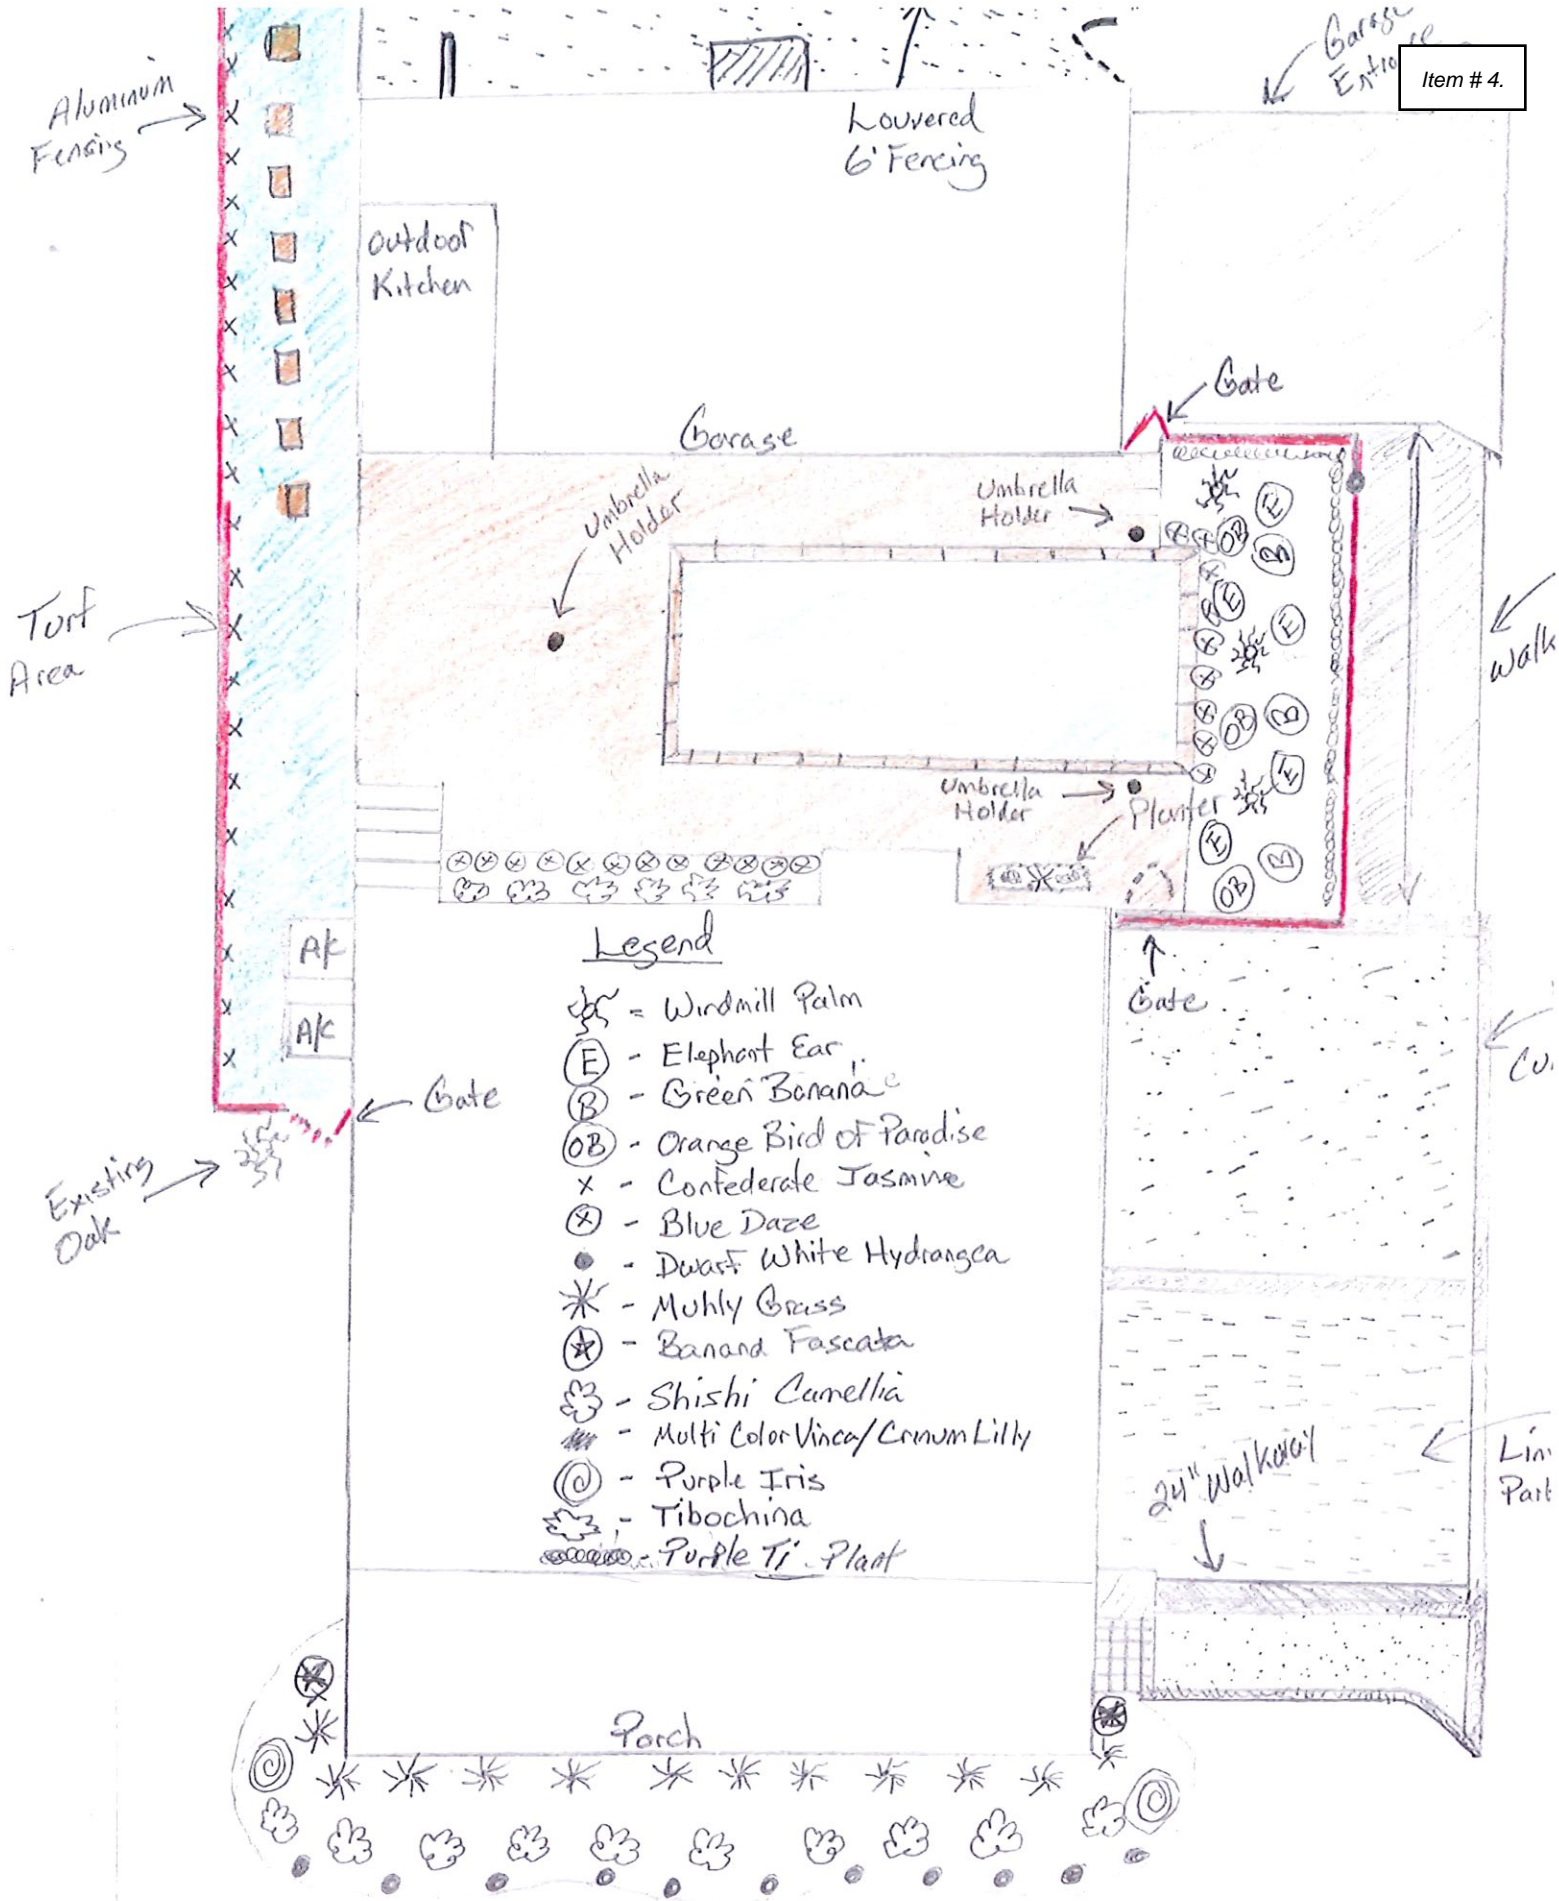 Garage
Item # 4.
Aluminum
Fensing
Louvered
6' Fencing
Outdoor
Kitchen
Gate
Garage
Umbrella
Holder
Umbrella
Holder
E
OB
B
E
E
Turf
Area
Walk
OB
B
Umbrella
Holder
Planter
E
E
B
OB
A/C
A/C
Legend
Gate
= Windmill Palm
E - Elephant Ear
B - Green Banana
OB - Orange Bird of Paradise
x - Confederate Jasmine
x - Blue Daze
- Dwarf White Hydrangea
- Muhly Grass
- Banana Fascata
- Shishi Camellia
- Multi Color Vinca/Crinum Lilly
- Purple Iris
- Tibochina
- Purple Ti Plant
Gate
Existing
Oak
24" Walkway
Porch